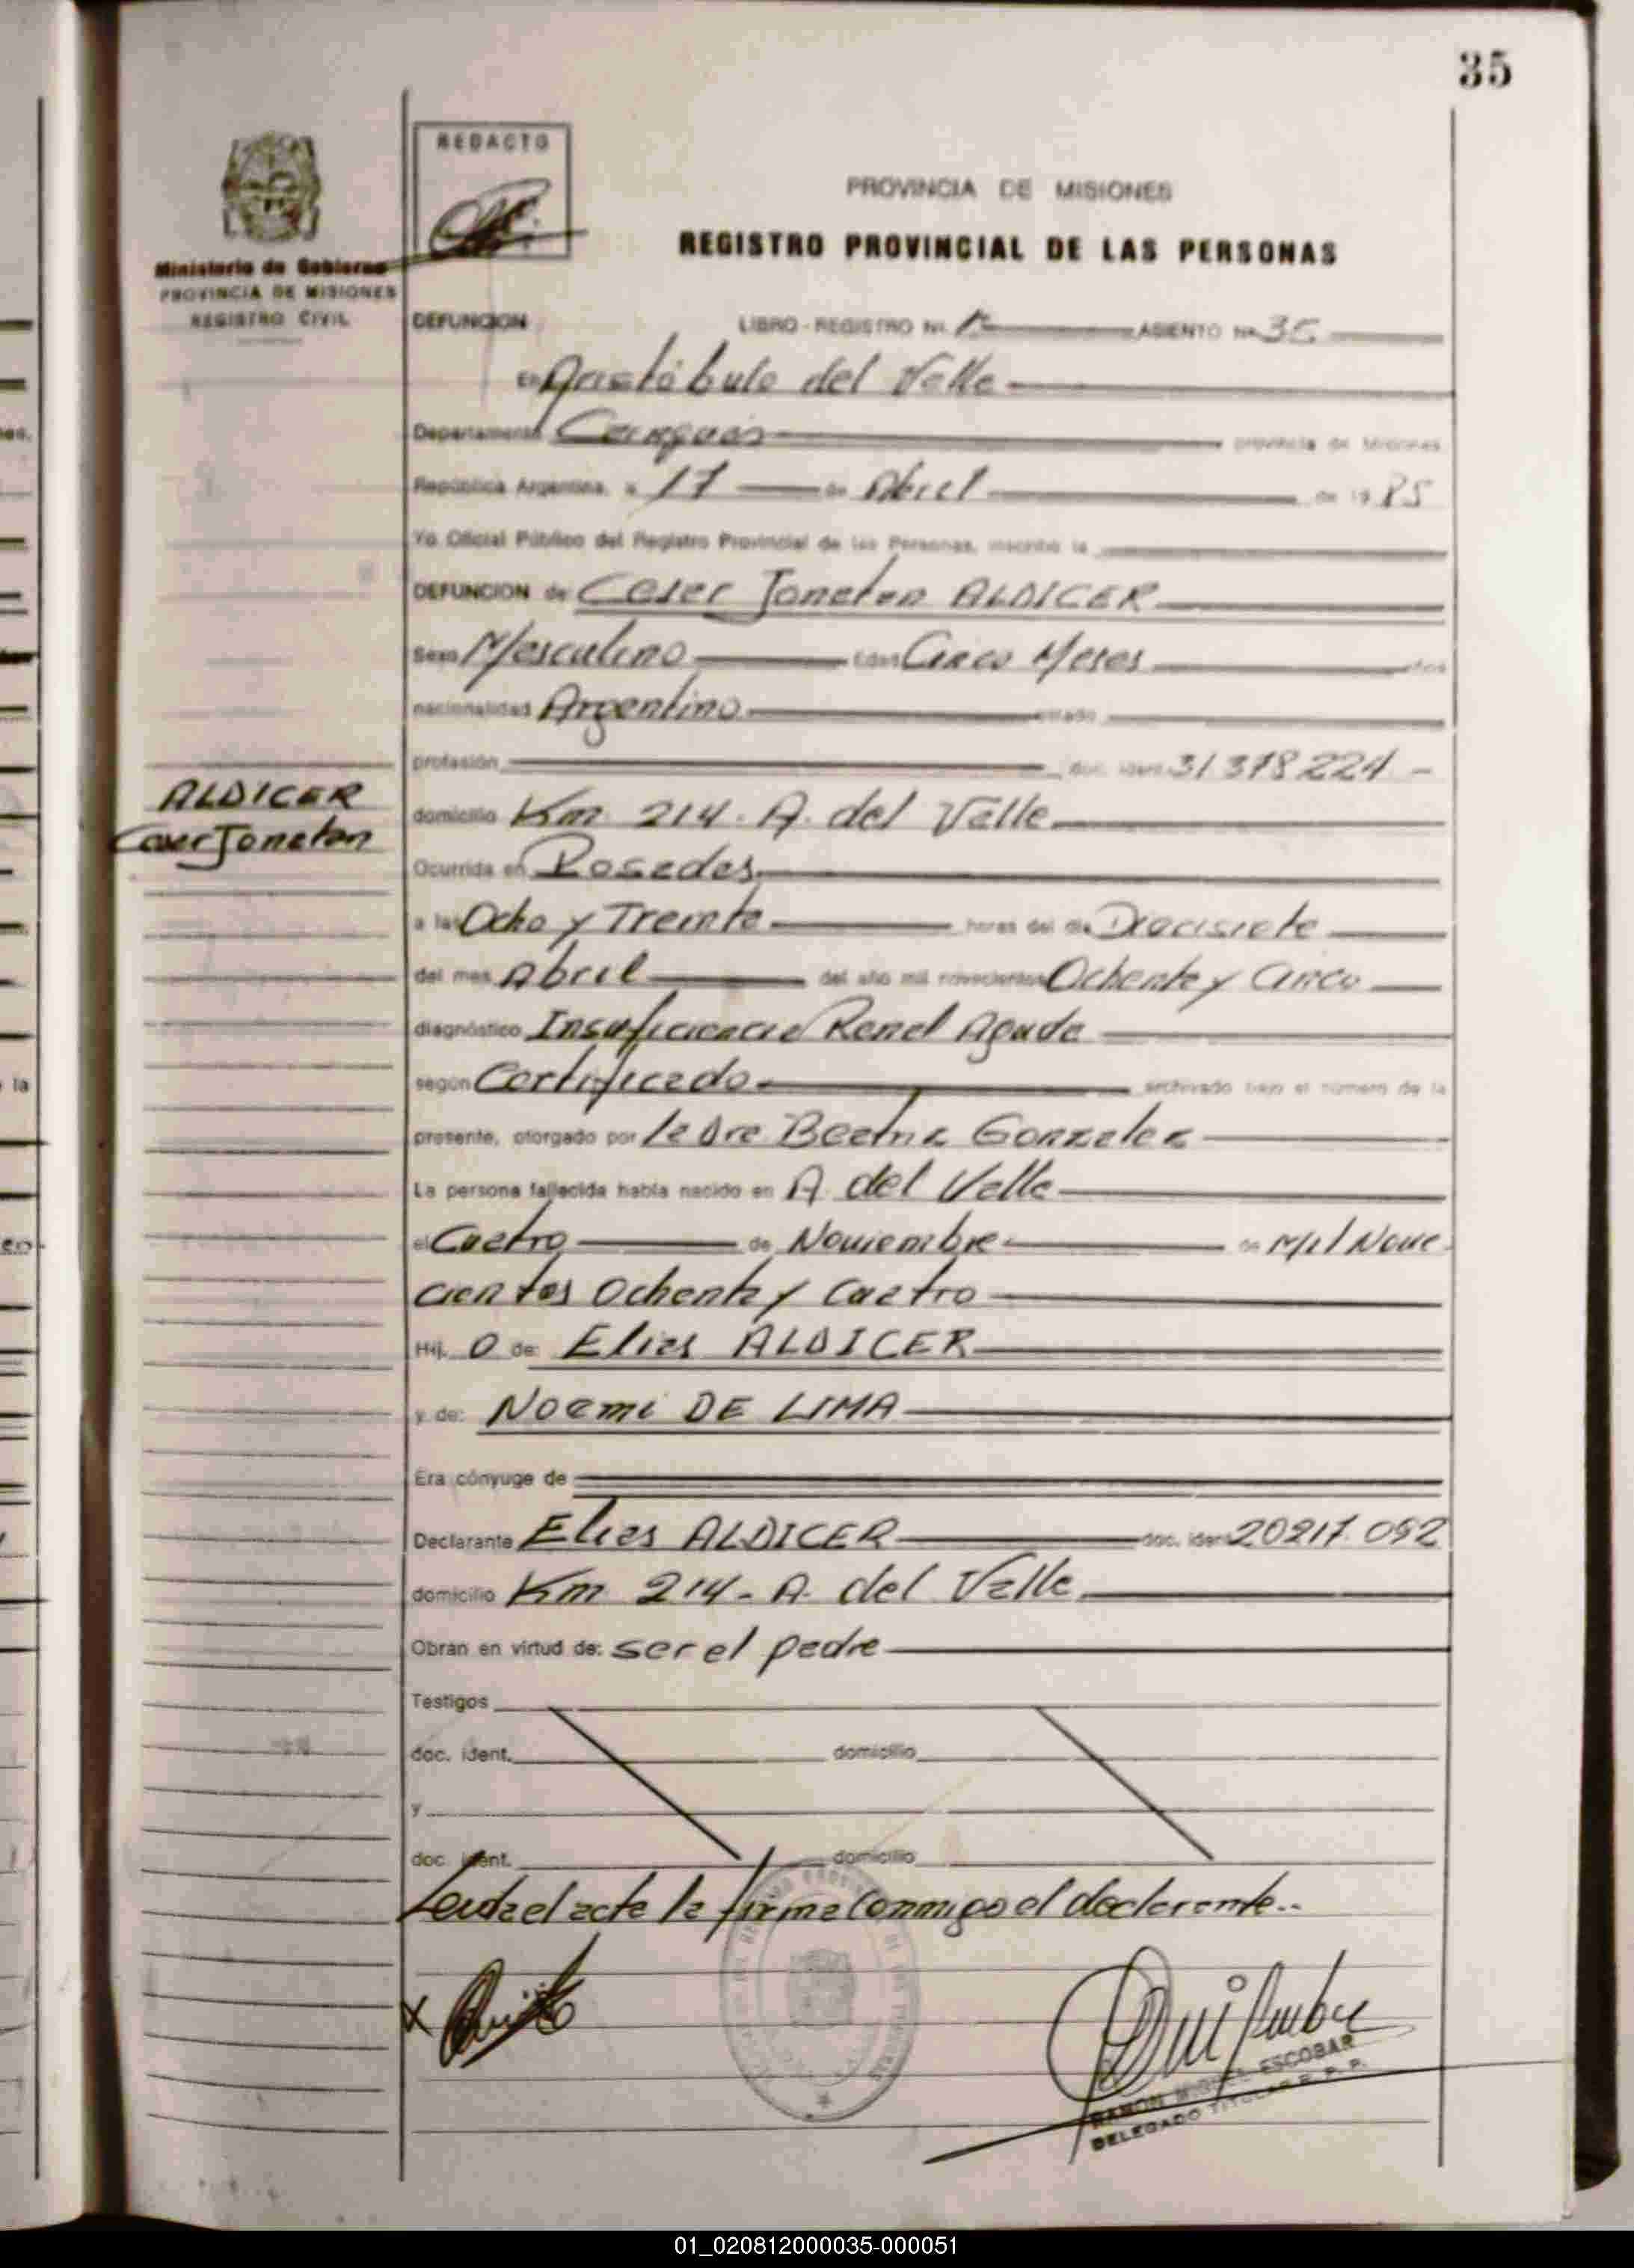 35
REDACTO
Ministerio de Gobierno
PROVINCIA DE MISIONES
REGISTRO CIVIL
PROVINCIA DE MISIONES
REGISTRO PROVINCIAL DE LAS PERSONAS
DEFUNCION LIBRO - REGISTRO Nº ASIENTO Nº 35
En Aristóbulo del Valle
Departamento Cainguás provincia de Misiones
República Argentina, a 17 de Abril de 19 85
Yo Oficial Público del Registro Provincial de las Personas, inscribo la
DEFUNCION de Cesar Jonatan ALDICER
Sexo Masculino edad Cinco Meses años
nacionalidad Argentino estado
profesión doc. ident. 31 378 224
domicilio Km. 214. A. del Valle
Ocurrida en Posadas
a las Ocho y Treinta horas del día Diecisiete
del mes Abril del año mil novecientos Ochenta y Cinco
diagnóstico Insuficiencia Renal Aguda
según Certificado archivado bajo el número de la
presente, otorgado por la Dra Beatriz Gonzalez
La persona fallecida había nacido en A. del Valle
el Cuatro de Noviembre de Mil Nove
cientos Ochenta y Cuatro
Hij. o de: Elias ALDICER
y de: Noemi DE LIMA
Era cónyuge de
Declarante Elias ALDICER doc. ident. 20217.092
domicilio Km 214- A. del Valle
Obran en virtud de: ser el padre
Testigos
doc. ident. domicilio
y
doc. ident. domicilio
Leida el acta la firma Conmigo el declarante..
ALDICER
Cesar Jonatan
X
RAMON MIGUEL ESCOBAR
DELEGADO TITULAR R. P. P.
01_020812000035-000051